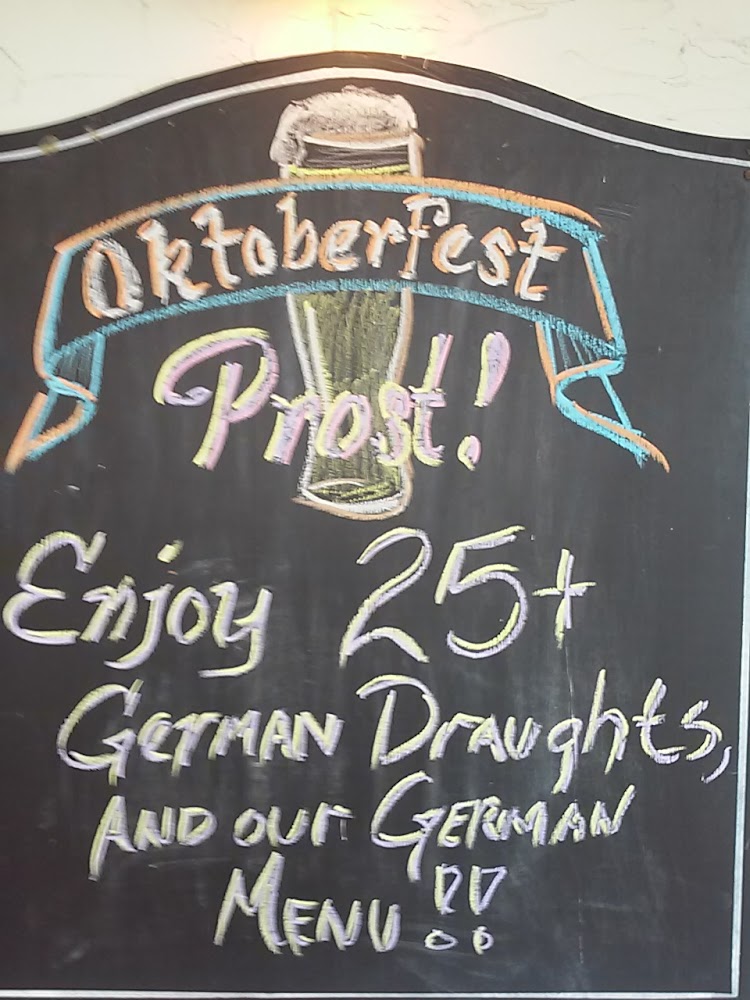 Oktoberfest
Prost!
Enjoy 25+
GerMAN Draughts,
AND our GERMAN
MENU!!